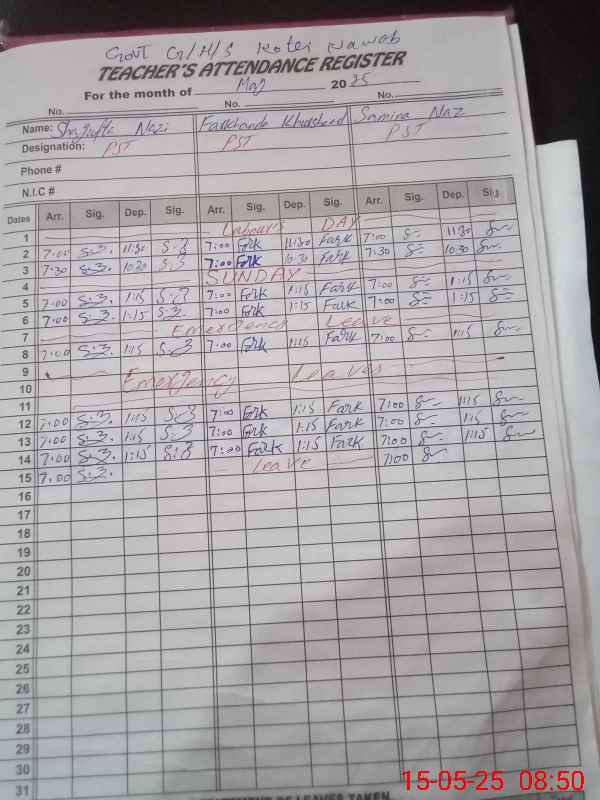 Govt G/H/S Kotei Nawab
TEACHER'S ATTENDANCE REGISTER
For the month of May 2025
No. No. No.
Name: Shagufta Nazi Farkhanda Khursheed Samina Naz
Designation: PST PST PST
Phone #
N.I.C #
Dates Arr. Sig. Dep. Sig. Arr. Sig. Dep. Sig. Arr. Sig. Dep. Sig.
1 Labour's DAY
2 7:00 S.3. 11:30 S.3 7:00 Fark 11:30 Fark 7:00 11:30
3 7:30 S.3. 10:30 S.3 7:00 Fark 10:30 Fark 7:30 10:30
4 SUNDAY
5 7:00 S.3. 1:15 S.3 7:00 Fark 1:15 Fark 7:00 1:15
6 7:00 S.3. 1:15 S.3 7:00 Fark 1:15 Fark 7:00 1:15
7 Emergency Leave
8 7:00 S.3. 1:15 S.3 7:00 Fark 1:15 Fark 7:00 1:15
9
10 Emergency Leaves
11
12 7:00 S.3. 1:15 S.3 7:00 Fark 1:15 Fark 7:00 1:15
13 7:00 S.3. 1:15 S.3 7:00 Fark 1:15 Fark 7:00 1:15
14 7:00 S.3. 1:15 S.3 7:00 Fark 1:15 Fark 7:00 1:15
15 7:00 S.3. Leave 7:00
16
17
18
19
20
21
22
23
24
25
26
27
28
29
30
31
OF LEAVES TAKEN
15-05-25 08:50